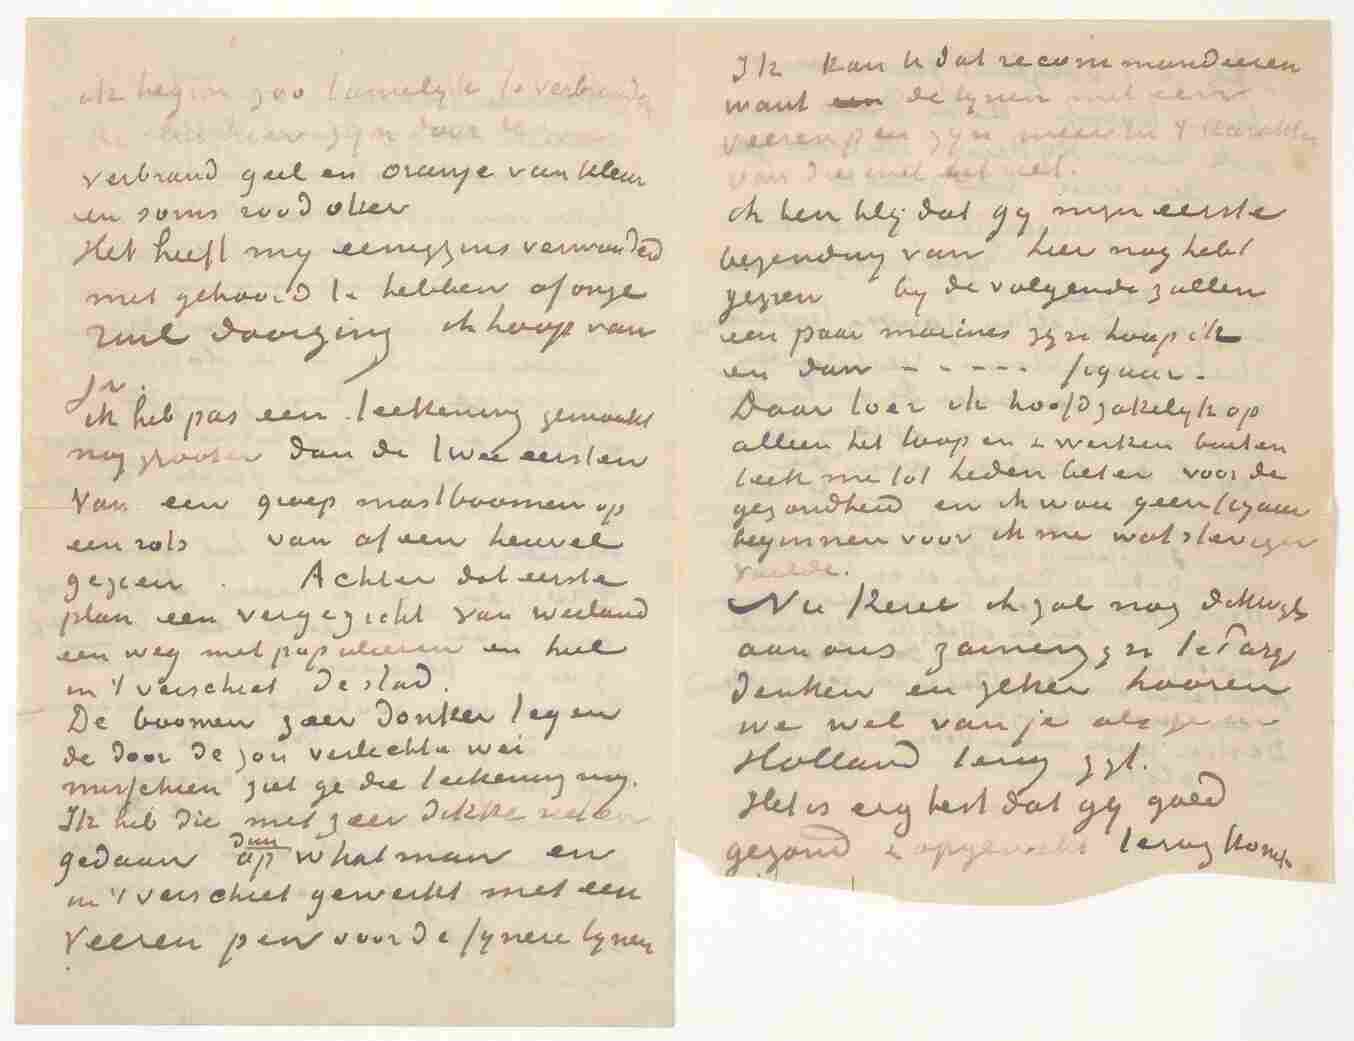 ik begin zoo tamelyk te verbranden
de
verbrand geel en oranje van kleur
en soms rood oker
Het heeft my eenigzins verwonderd
niet gehoord te hebben of onze
ruil doorging ik hoop van
ja.
ik heb pas een teekening gemaakt
nog grooter dan de twee eersten
van een groep mastboomen op
een rots van af een heuvel
gezien. Achter dat eerste
plan een vergezicht van weiland
een weg met populieren en heel
in 't verschiet de stad.
De boomen zeer donker tegen
de door de zon verlichte wei
misschien zul ge die teekening nog.
Ik heb die met zeer dikke rieten
gedaan op dun whatman en
in 't verschiet gewerkt met een
veeren pen voor de fynere lynen
Ik kan U dat recommandeeren
want een de lynen met een
veeren pen zyn meer in 't karakter
van die met het riet.
ik ben bly dat gy myn eerste
bezending van hier nog hebt
gezien by de volgende zullen
een paar marines zyn hoop ik
en dan - - - - - figuur -
Daar loer ik hoofdzakelyk op
alleen het loopen & werken buiten
leek me tot heden beter voor de
gezondheid en ik wou geen figuur
beginnen voor ik me wat steviger
voelde.
Nu kerel ik zal nog dikwyls
aan ons zamenzyn te Parys
denken en zeker hooren
we wel van je als je in
Holland terug zyt.
Het is erg best dat gy goed
gezond & opgewekt terug komt